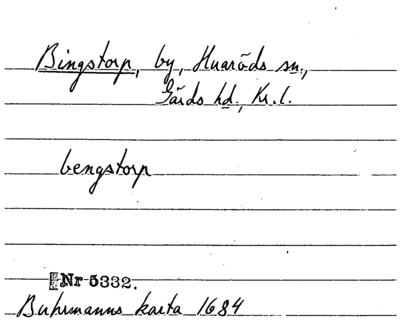 Bingstorp, by, Huaröds sn.,
Gärds hd., Kr. l.
bengstorp
Nr 5332.
Buhrmanns karta 1684